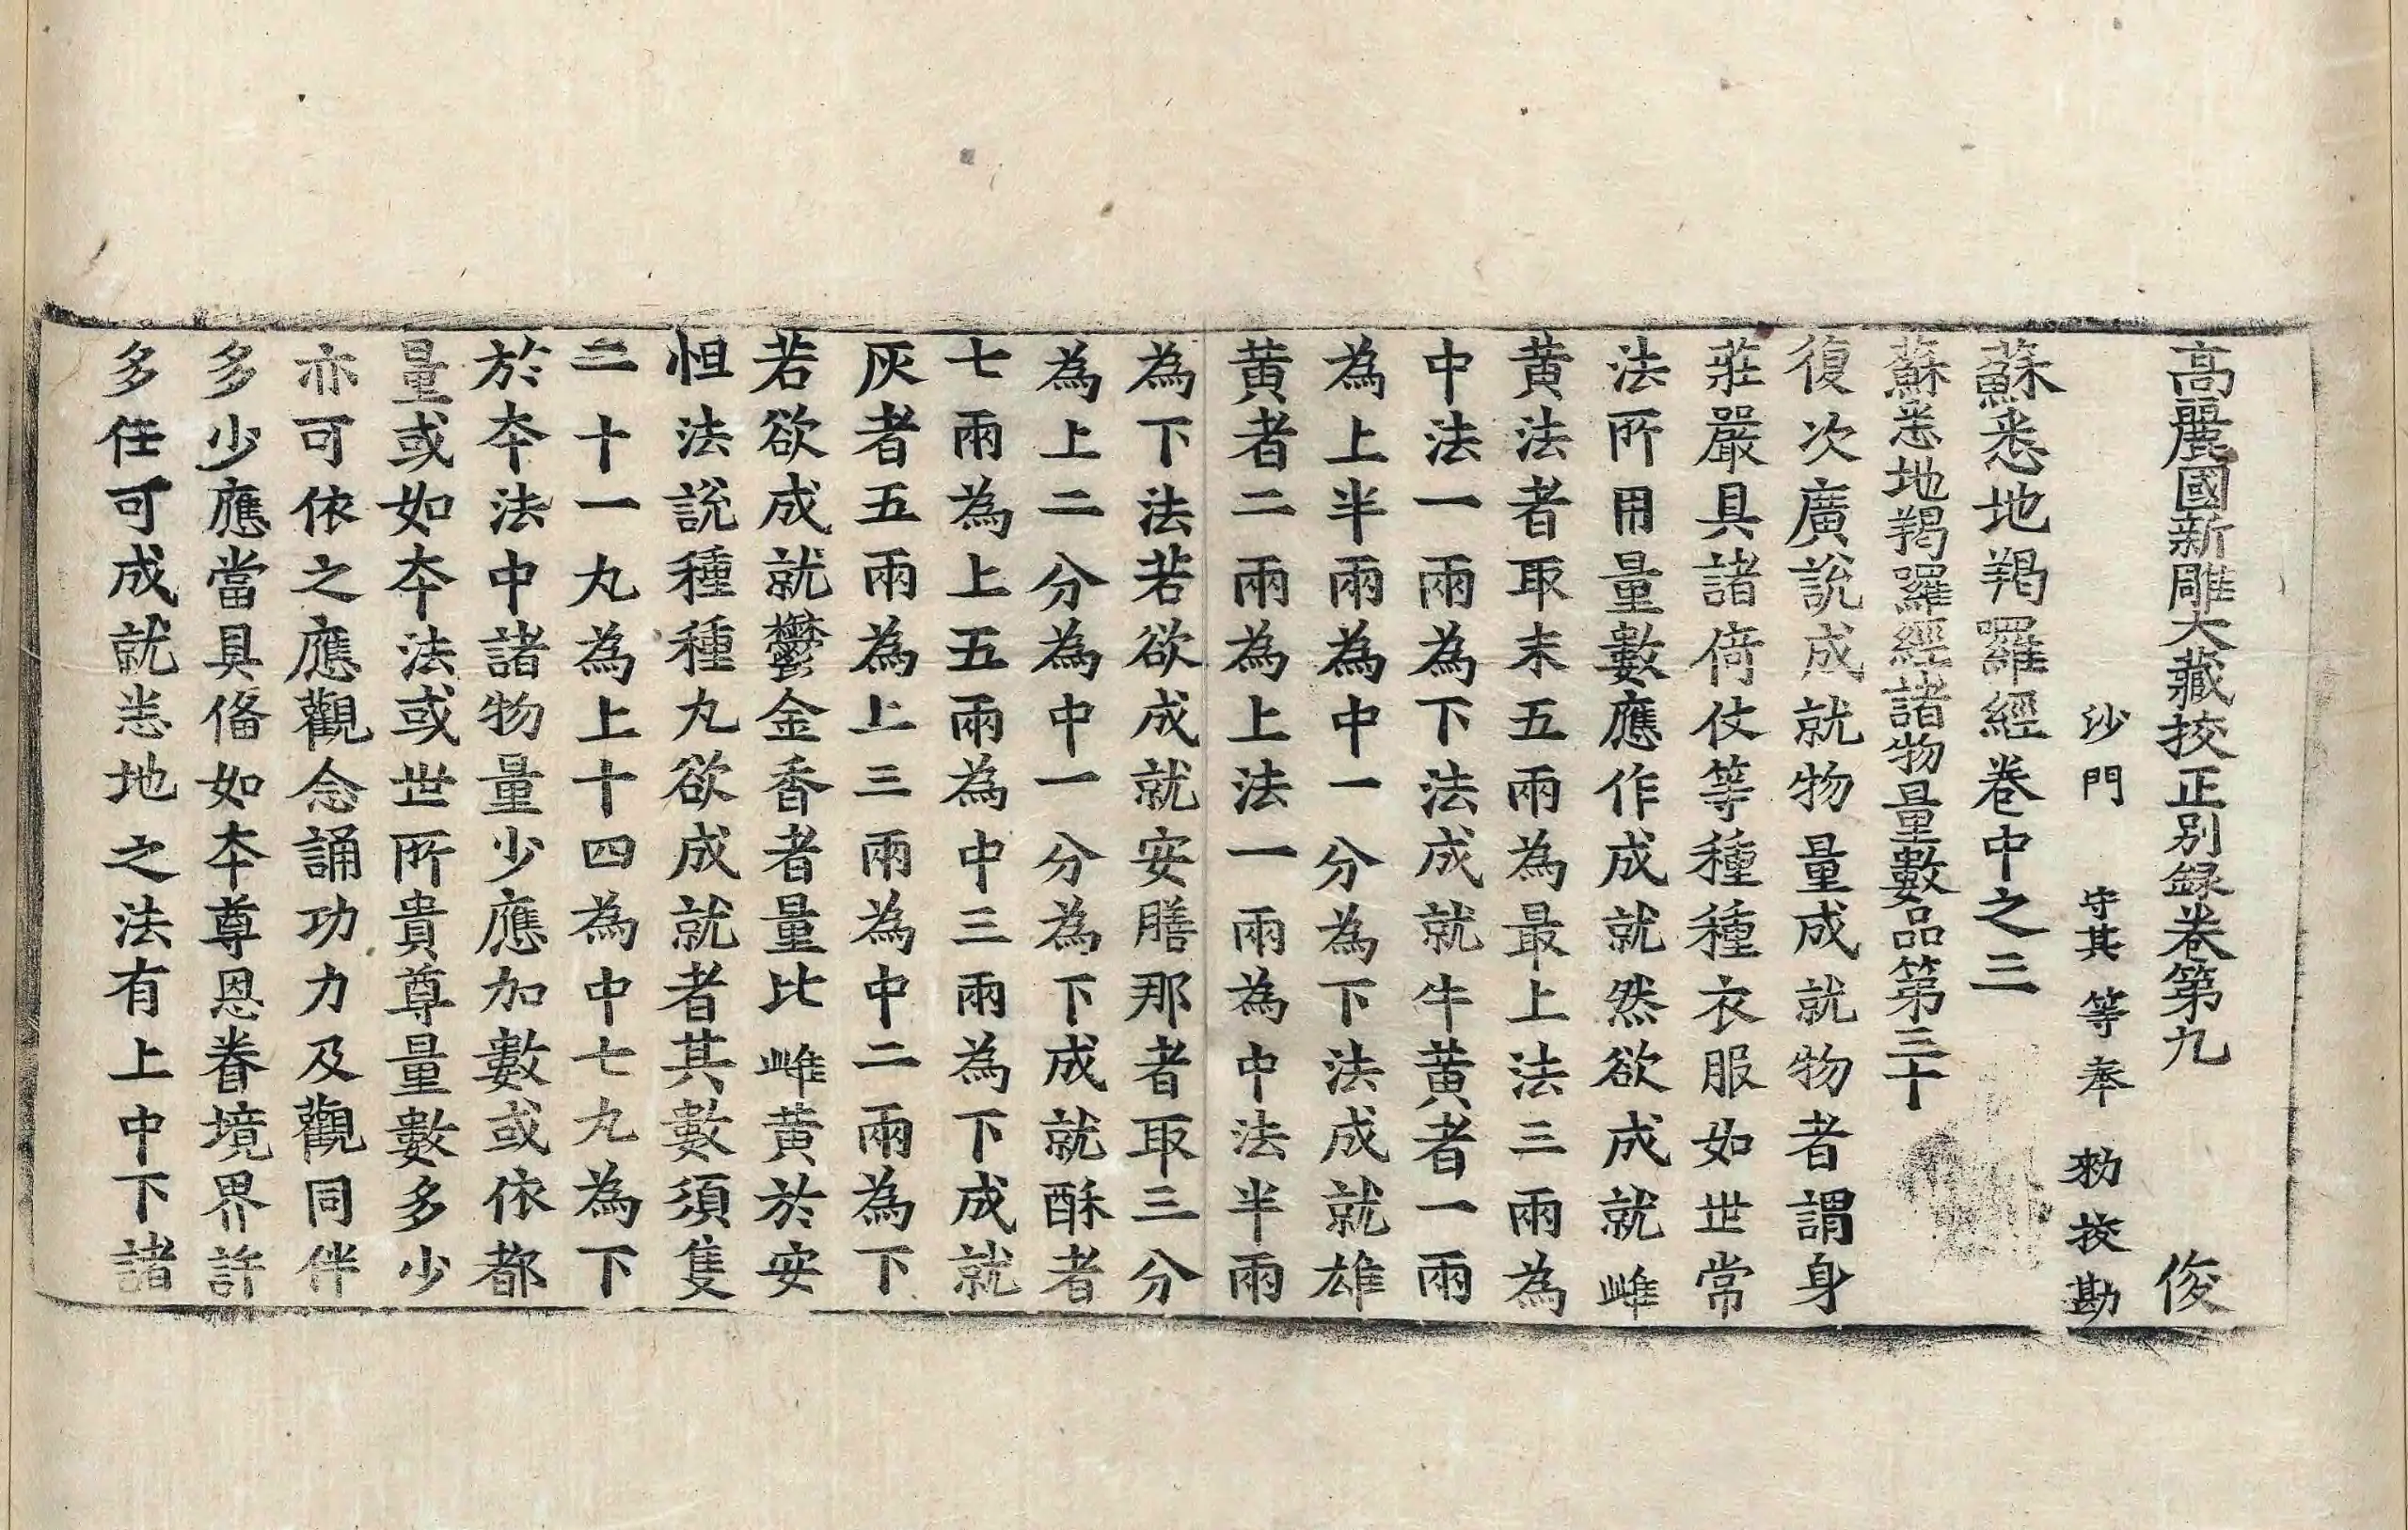 高麗國新雕大藏挍正別錄卷第九 俊
沙門 守其 等奉 勑挍勘
蘇悉地羯囉經卷中之三
蘇悉地羯囉經諸物量數品第三十
復次廣說成就物量成就物者謂身
莊嚴具諸倚仗等種種衣服如世常
法所用量數應作成就然欲成就雌
黃法者取末五兩為最上法三兩為
中法一兩為下法成就牛黃者一兩
為上半兩為中一分為下法成就雄
黃者二兩為上法一兩為中法半兩
為下法若欲成就安膳那者取三分
為上二分為中一分為下成就酥者
七兩為上五兩為中三兩為下成就
灰者五兩為上三兩為中二兩為下
若欲成就鬱金香者量比雌黃於安
怛法說種種丸欲成就者其數須隻
二十一丸為上十四為中七丸為下
於夲法中諸物量少應加數或依都
量或如夲法或世所貴尊量數多少
亦可依之應觀念誦功力及觀同伴
多少應當具俻如夲尊恩眷境界許
多任可成就悉地之法有上中下諸